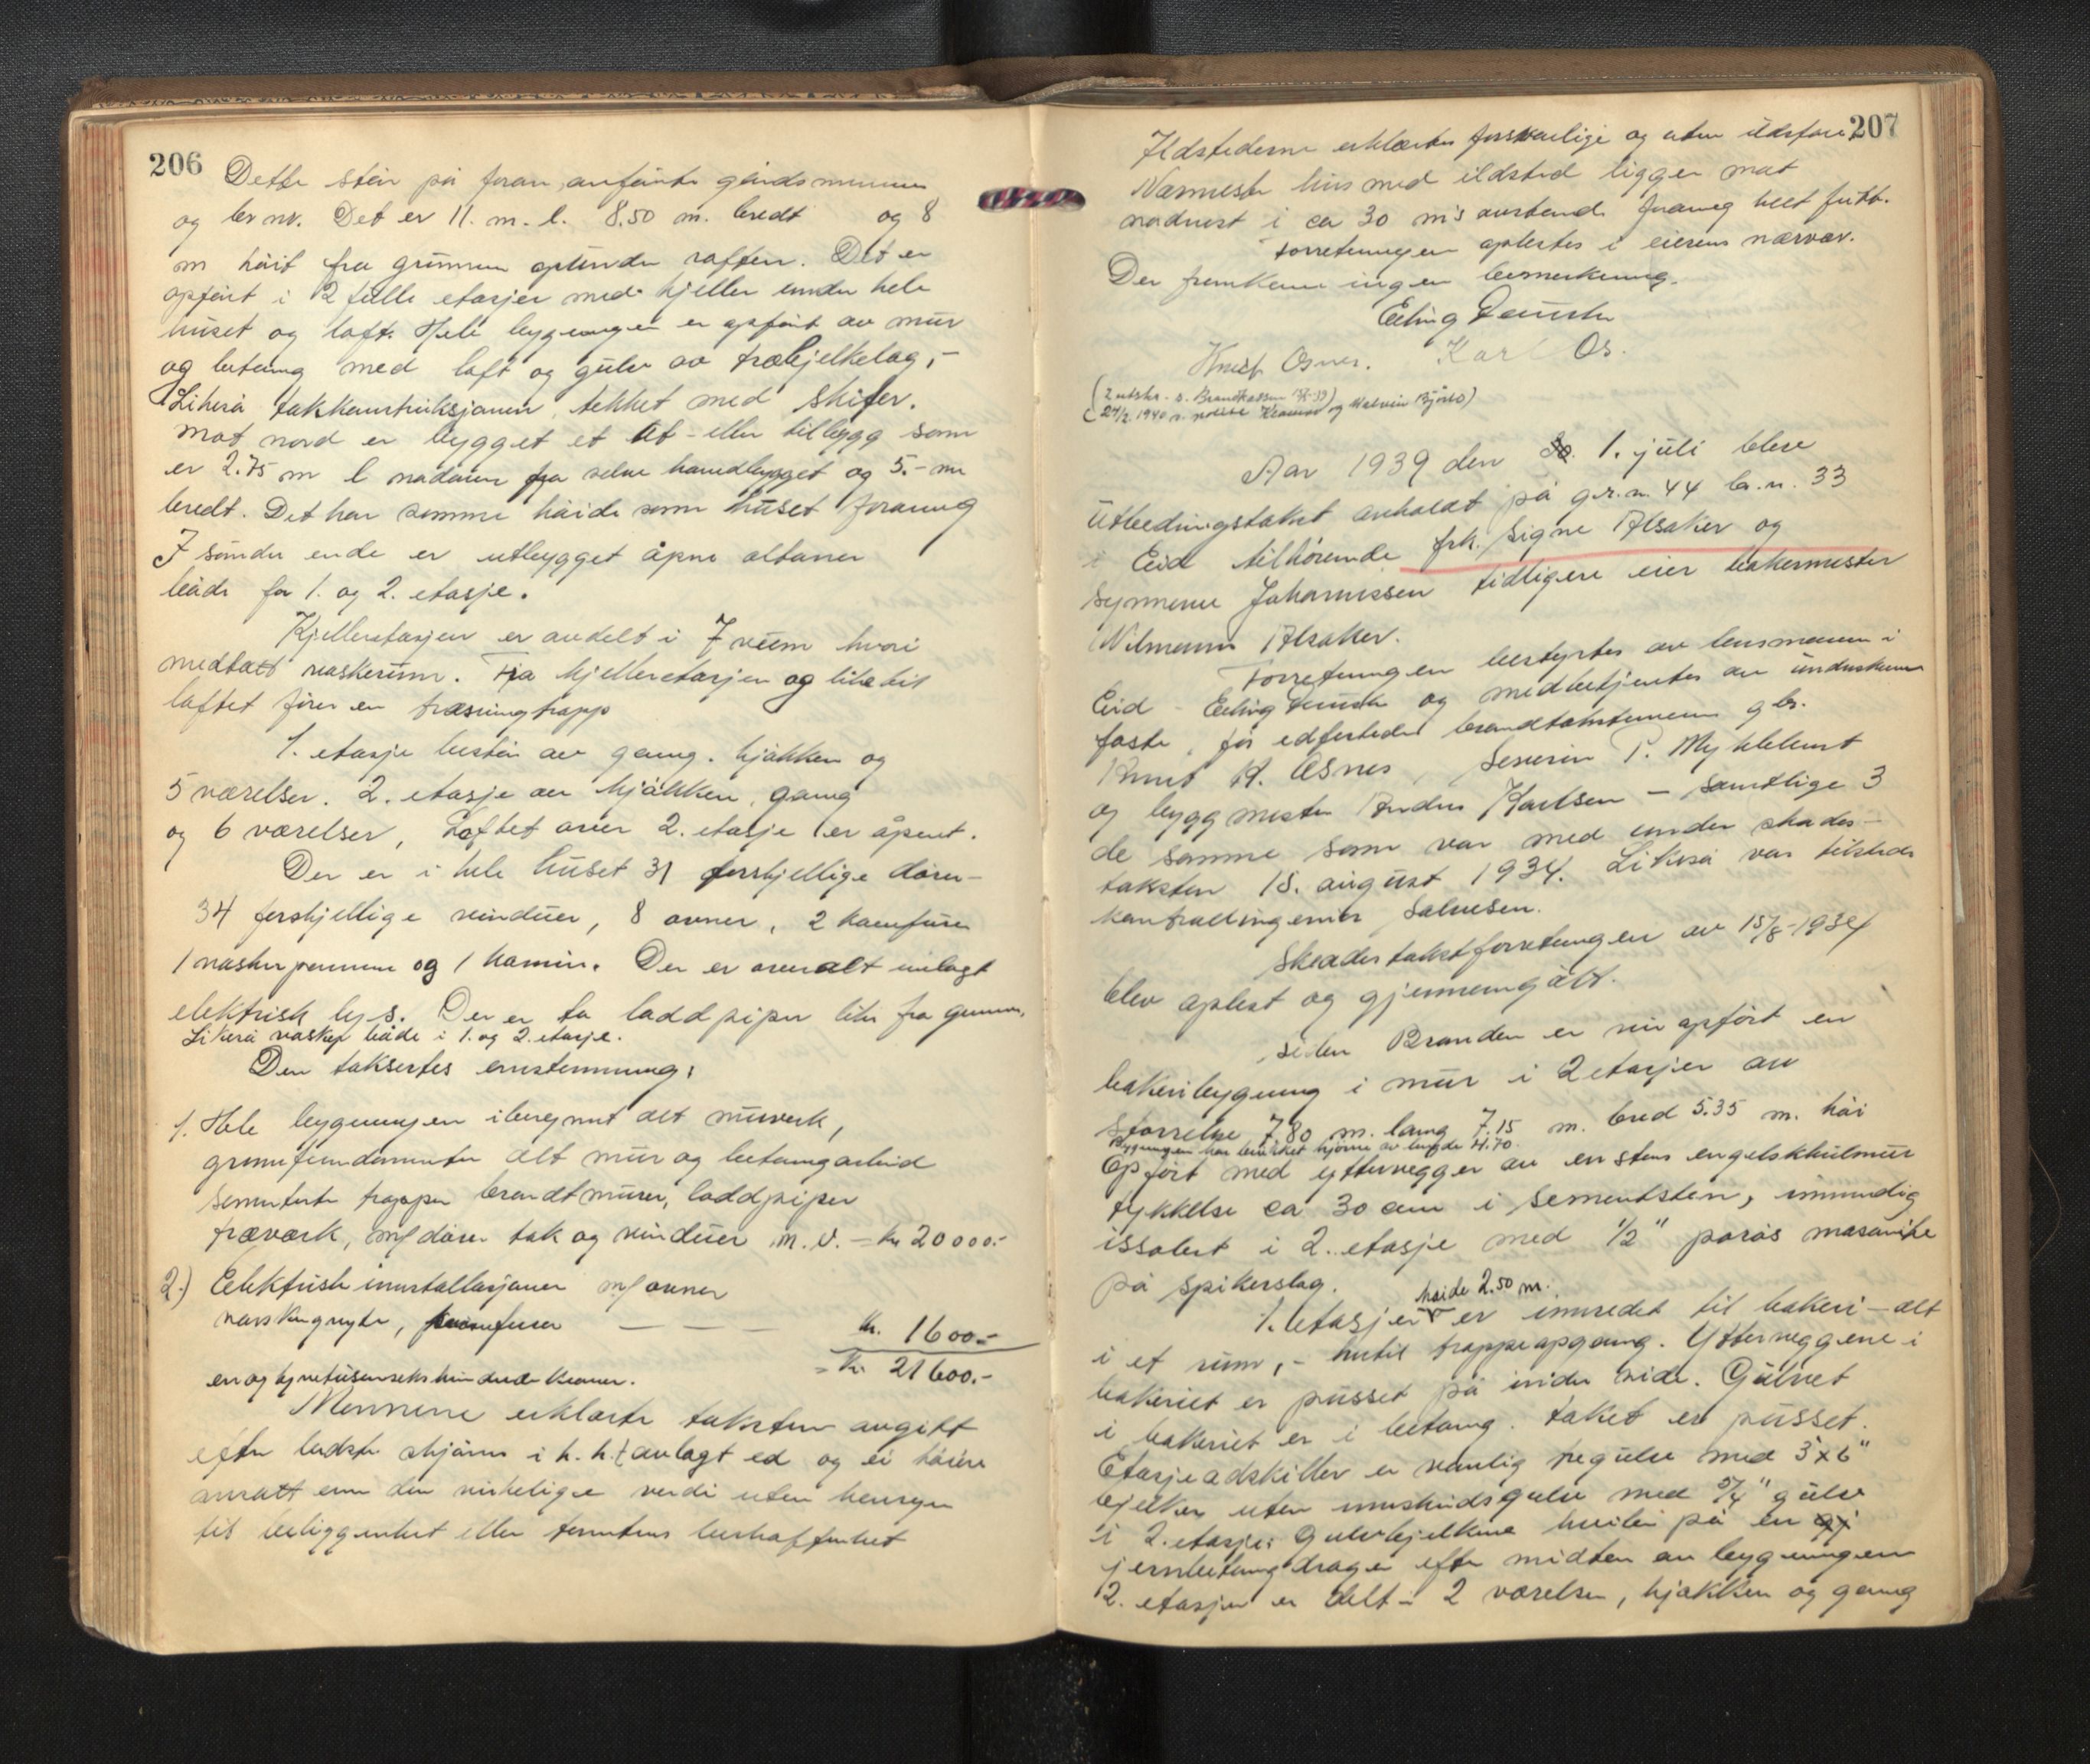 206
Dette står på foran anførte gårdsnummer
og br nr. Det er 11. m. l. 8.50 m. bredt og 8
m høit fra grunnen optunder raften. Det er
opført i 2 fulle etasjer med kjeller under hele
huset og loft. Hele bygningen er opført av mur
og betong med loft og gulv av træbjelkelag, -
Likeså takkonstruksjonen, tekket med skifer.
Mot nord er bygget et ut - eller tilbygg som
er 2.75 m l nadover fra selve hovedbygget og 5.- m
bredt. Det har samme høide som huset foraavrig
I søndre ende er utbygget åpne altaner
både for 1. og 2. etasje.
Kjelleretasjen er avdelt i 7 rum hvori
medtatt vaskerum. Fra kjelleretasjen og like til
loftet fører en træsvingtrapp
1. etasje består av gang. kjøkken og
5 værelser. 2. etasje av kjøkken, gang
og 6 værelser, Loftet over 2. etasje er åpent.
Der er i hele huset 31 forskjellige dører -
34 forskjellige vinduer, 8 ovner, 2 komfurer
1 vaskepanne og 1 kamin. Der er overalt innlagt
elektrisk lys. Der er to loddpiper like fra grunnen,
Likeså vasker både i 1. og 2. etasje.
Den taksertes enstemmig:
1. Hele bygningen iberegnet alt murverk,
grunnfundamenter alt mur og betongarbeid
sementerte trapper brandtmurer, loddpiper
træværk, m/ dører tak og vinduer m. v. - kr 20000.-
2.) Elektriske innstallasjoner m/ ovner
vaskegryte, komfurer — — — kr. 1600.-
= kr. 21600.-
en og tyvetusenseks hundrede kroner.
Mennene erklærte taksten avgitt
efter bedste skjønn i h. h. t avlagt ed og ei høiere
ansatt enn den virkelige verdi uten hensyn
til beliggenhet eller tomtens beskaffenhet
207
Ildstederne erklærtes forsvarlige og uten ildsfare
Nærmeste hus med ildsted ligger mot
nordvest i ca 30 m's avstand foraavrig helt fritt.
Forretningen oplestes i eierens nærvær.
Der fremkom ingen bemerkning.
Erling
Knut Osnes. Karl Os.
(2 utskr. s. Brandkassen
(24/2 1940 s. politi og
Aar 1939 den 1. juli blev
Utbedringstakst avholdt på g.r.n. 44 br.n. 33
i Eid tilhørende frk. Signe Alsaker og
Synnøve Johannessen tidligere eier bakermester
Alsaker.
Forretningen bestyrtes av lensmannen i
Eid - Erling og medbetjentes av underskrevne
faste, før edfestede brandtakstmenn gbr.
Knut K. Osnes, Severin P. Myklebust
og byggmester Anders Karlsen - samtlige 3
de samme som var med under skades-
taksten 15. august 1934. Likeså var tilstede
kontrollingeniør Salvesen.
Skadestakstforretningen av 15/8-1934
blev oplest og gjennemgått.
Siden Branden er nu opført en
bakeribygning i mur i 2 etasjer av
Størrelse 7.80 m. lang 7.15 m. bred 5.35 m. høi
Bygningen har brukket hjørne av lengde 4.70.
Opført med yttervegger av en stens engelskhulmur
tykkelse ca 30 cm i sementsten, innvendig
issolert i 2. etasje med 1/2" porøs masonite
på spikerslag.
høide 2.50 m.
1. Etasje er innredet til bakeri - alt
i et rum, - trappeopgang. Ytterveggene i
bakeriet er pusset på indre side. Gulvet
i bakeriet er i betong. taket er pusset.
Etasjeadskiller er vanlig tregulv med 3"x6"
bjelker uten innskudsgulv med 5/4" gulv
i 2. etasje. Gulvbjelkene hviler på en
jernbetongdrager efter midten av bygningen
2. etasje er delt i 2 værelser, kjøkken og gang